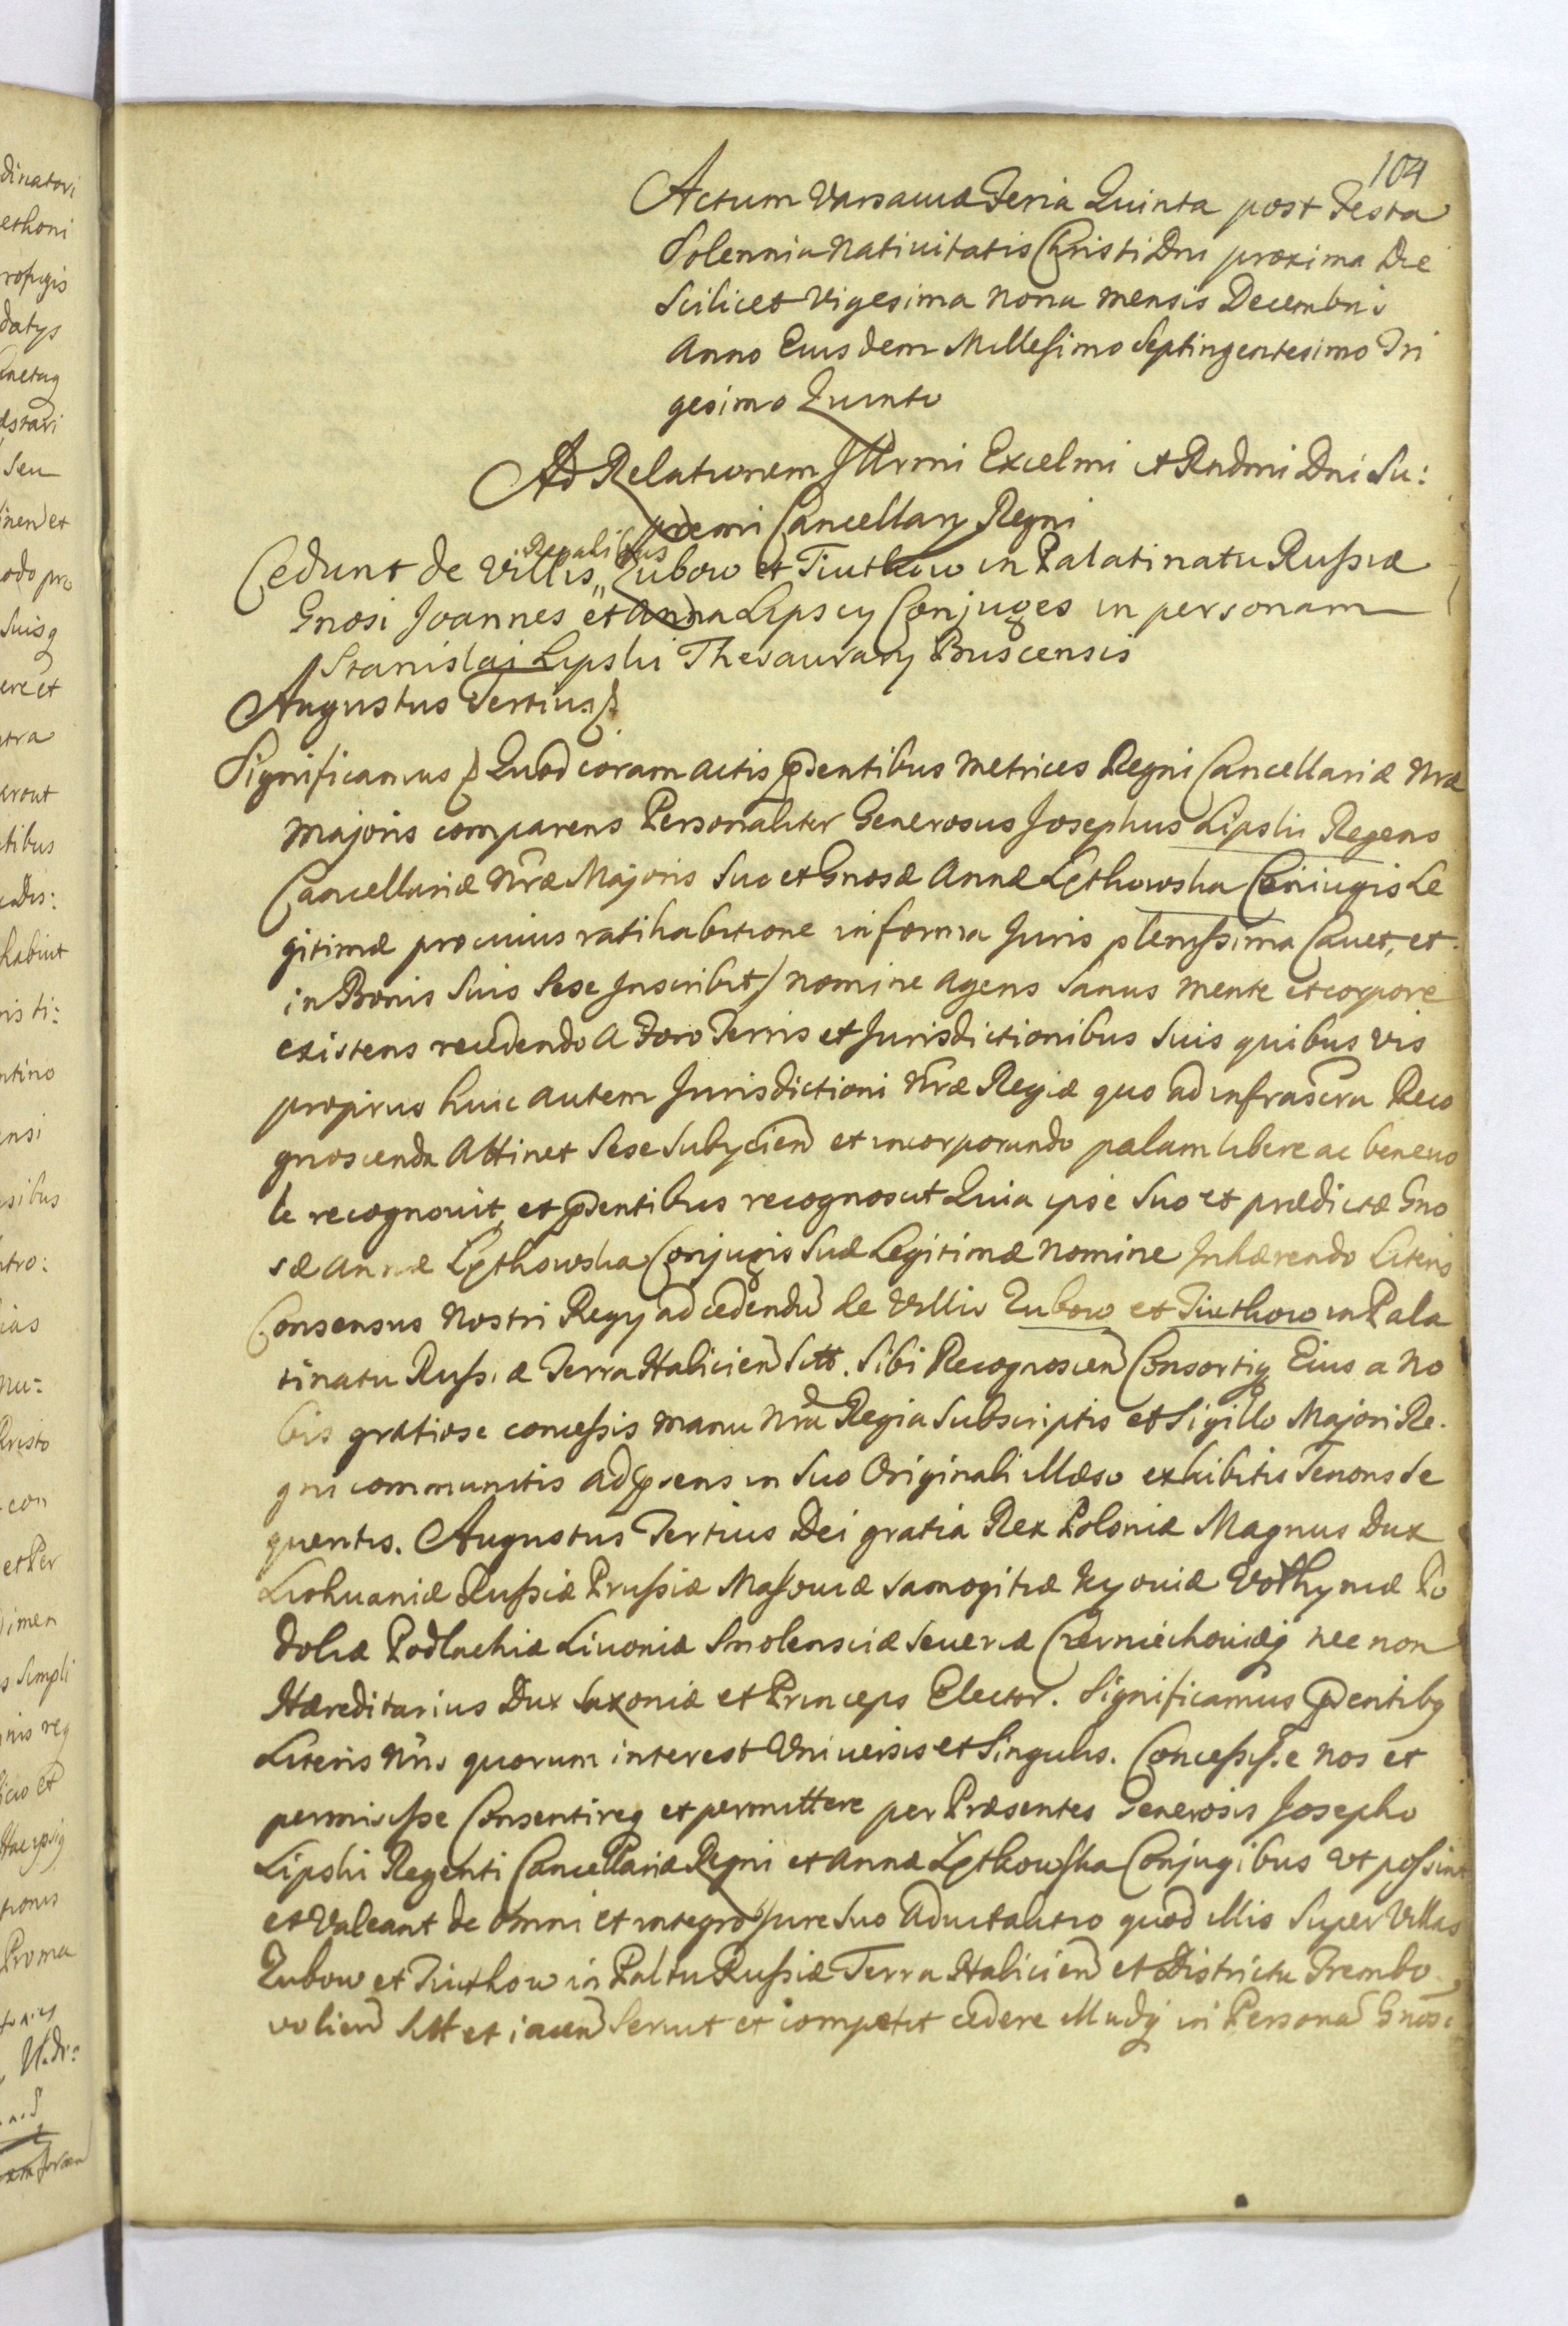 104
Actum Varsaviæ Feria Quinta post Festa
Solennia Nativitatis Christi Dni proxima Die
Scilicet Vigesima Nona mensis Decembris
Anno Eiusdem Millesimo Septingentesimo Tri
gesimo Quinto
Ad Relationem Illrmi Excelmi et Rndmi Dni Su:
premi Cancellarij Regni
Cedunt de Villis Regalibus Zubow et Tiutkow in Palatinatu Russiæ
Gnosi Joannes et Anna Lipscy Conjuges in personam
Stanislai Lipski Thesaurarij Buscensis
Augustus Tertius
Significamus Quod coram actis pñdentibus Metrices Regni Cancellariæ Nræ
Majoris comparens Personaliter Generosus Josephus Lipski Regens
Cancellariæ Nræ Majoris Suo et Gnosæ Annæ Lętkowska Coniugis Le
gitimæ pro cuius ratihabitione in forma Juris plenissima Cavet, et
in Bonis Suis Sese Inscribit) nomine Agens Sanus mente et corpore
existens recedendo A Foro Terris et Jurisdictionibus Suis quibus vis
proprius huic autem Jurisdictioni Nræ Regiæ quo ad infrascra Reco
gnoscenda Attinet Sese Subycien et incorporando palam libere ac benevo
le recognovit, et pñdentibus recognoscit Quia ipse Suo et prædictæ Gno
sæ Annæ Lętkowska Conjugis Suæ Legitimæ Nomine Inhærendo Literis
Consensus Nostri Regy ad cedendū de Villis Zubow et Tiutkow in Pala
tinatu Russiæ Terra Halicien Sitt. Sibi Recognoscen Consortiq Eius a No
bis gratiose concessis manu Nra Regia Subscriptis et Sigillo Majori Re.
gni communitis ad pñsens in Suo Originali Illæso exhibitis Tenoris Se
quentis. Augustus Tertius Dei gratia Rex Poloniæ Magnus Dux
Lithuaniæ Russiæ Prussiæ Masoviæ Samogitiæ Kyoviæ Volhyniæ Po
doliæ Podlachiæ Livoniæ Smolensciæ Severiæ Czerniechoviæq nec non
Hæreditarius Dux Saxoniæ et Princeps Elector. Significamus pñdentibq
Literis Nris quorum interest Universis et Singulis. Concessisse nos et
permisisse Consentireq et permittere per Præsentes Generosis Josepho
Lipski Regenti Cancellariæ Regni et Annæ Lętkowska Conjugibus Vt possint
et Valeant de omni et integro Jure Suo Advitalitio quod illis Super Villas
Zubow et Tiutkow in Paltu Russiæ Terra Halicien et Districtu Trembo
wolien Sitt et iacen Servit et competit cedere Illudq in Persona Gnosi